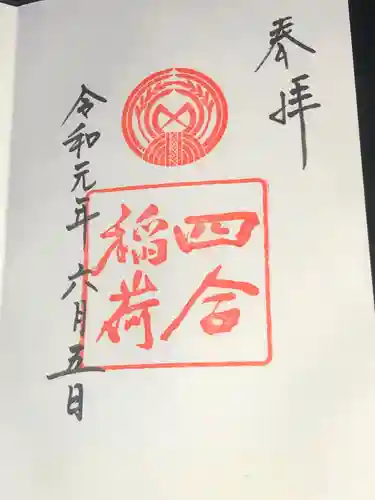 奉拝
四合
稲荷
令和元年六月五日